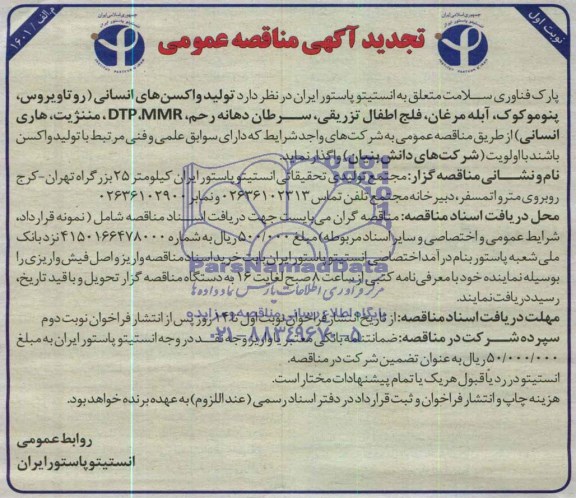 نوبت اول
جمهوری اسلامی ایران
انستیتو پاستور ایران
تجدید آگهی مناقصه عمومی
جمهوری اسلامی ایران
انستیتو پاستور ایران
م.الف / ۱۶۰۱
پارک فناوری سلامت متعلق به انستیتو پاستور ایران در نظر دارد تولید واکسن‌های انسانی (روتاویروس،
پنوموکوک، آبله مرغان، فلج اطفال تزریقی، سرطان دهانه رحم، DTP،MMR، مننژیت، هاری
انسانی) از طریق مناقصه عمومی به شرکت‌های واجد شرایط که دارای سوابق علمی و فنی مرتبط با تولید واکسن
باشند با اولویت (شرکت‌های دانش بنیان) واگذار نماید.
نام و نشانی مناقصه گزار: مجتمع تولیدی تحقیقاتی انستیتو پاستور ایران کیلومتر ۲۵ بزرگراه تهران-کرج
روبروی مترو اتمسفر، دبیرخانه مجتمع تلفن تماس ۰۲۶۳۶۱۰۲۳۱۳ و نمابر ۰۲۶۳۶۱۰۲۹۰۰
محل دریافت اسناد مناقصه: مناقصه گران می‌بایست جهت دریافت اسناد مناقصه شامل (نمونه قرارداد،
شرایط عمومی و اختصاصی و سایر اسناد مربوطه) مبلغ ریال به شماره ۴۱۵۰۱۶۶۴۷۸۰۰۰۰ نزد بانک
ملی شعبه پاستور بنام درآمد اختصاصی انستیتو پاستور ایران بابت خرید اسناد مناقصه واریز و اصل فیش واریزی را
بوسیله نماینده خود با معرفی نامه کتبی از ساعت ۸ صبح لغایت ۱۶ به دستگاه مناقصه گزار تحویل و با قید تاریخ،
رسید دریافت نمایند.
مهلت دریافت اسناد مناقصه: از تاریخ انتشار فراخوان نوبت اول تا ۱۴ روز پس از انتشار فراخوان نوبت دوم
سپرده شرکت در مناقصه: ضمانتنامه بانکی معتبر یا واریز وجه نقد در وجه انستیتو پاستور ایران به مبلغ
۵۰/۰۰۰/۰۰۰ ریال به عنوان تضمین شرکت در مناقصه.
انستیتو در رد یا قبول هر یک یا تمام پیشنهادات مختار است.
هزینه چاپ و انتشار فراخوان و ثبت قرارداد در دفتر اسناد رسمی (عنداللزوم) به عهده برنده خواهد بود.
روابط عمومی
انستیتو پاستور ایران
ParsNamadData
مرکز فرآوری اطلاعات پارس نماد داده‌ها
پایگاه اطلاع رسانی مناقصه و مزایده
۰۲۱-۸۸۳۴۹۶۷۰-۵